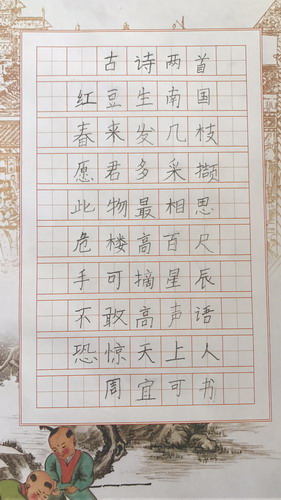 古诗两首
红豆生南国
春来发几枝
愿君多采撷
此物最相思
危楼高百尺
手可摘星辰
不敢高声语
恐惊天上人
周宜可书